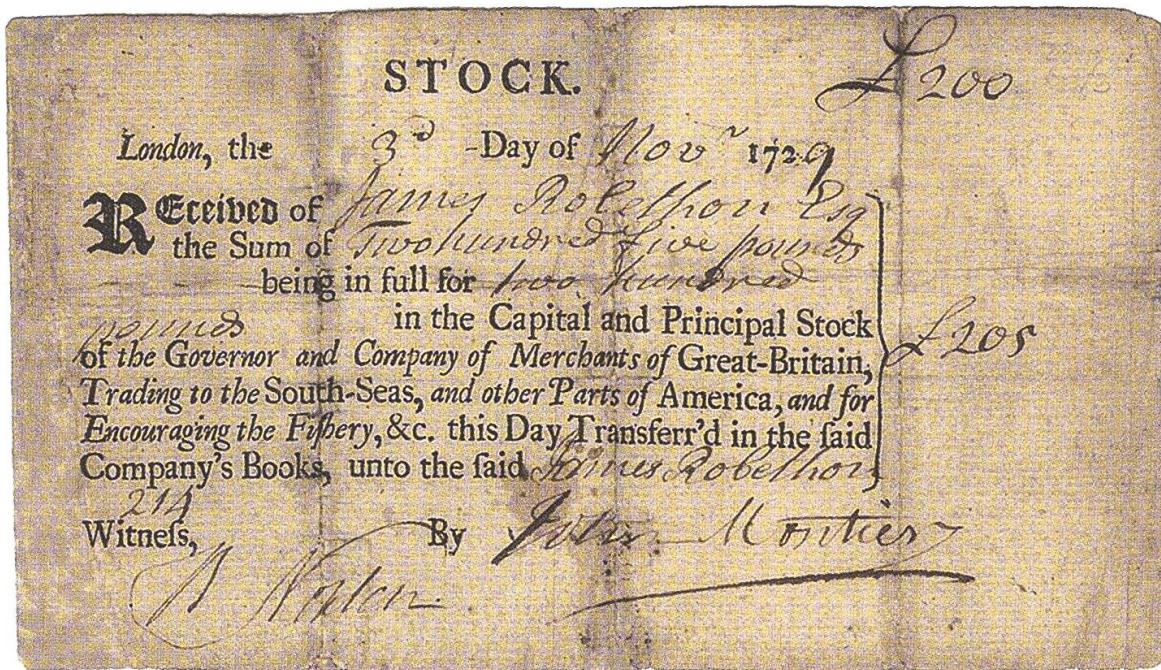 STOCK. £200
London, the 3d Day of Novr 1729
REceived of James Robethon Esq
the Sum of Two hundred five pounds
being in full for two hundred
pounds in the Capital and Principal Stock
of the Governor and Company of Merchants of Great-Britain, £205
Trading to the South-Seas, and other Parts of America, and for
Encouraging the Fiſhery, &c. this Day Transferr'd in the ſaid
Company's Books, unto the ſaid James Robethon
214
Witneſs, By John Montier